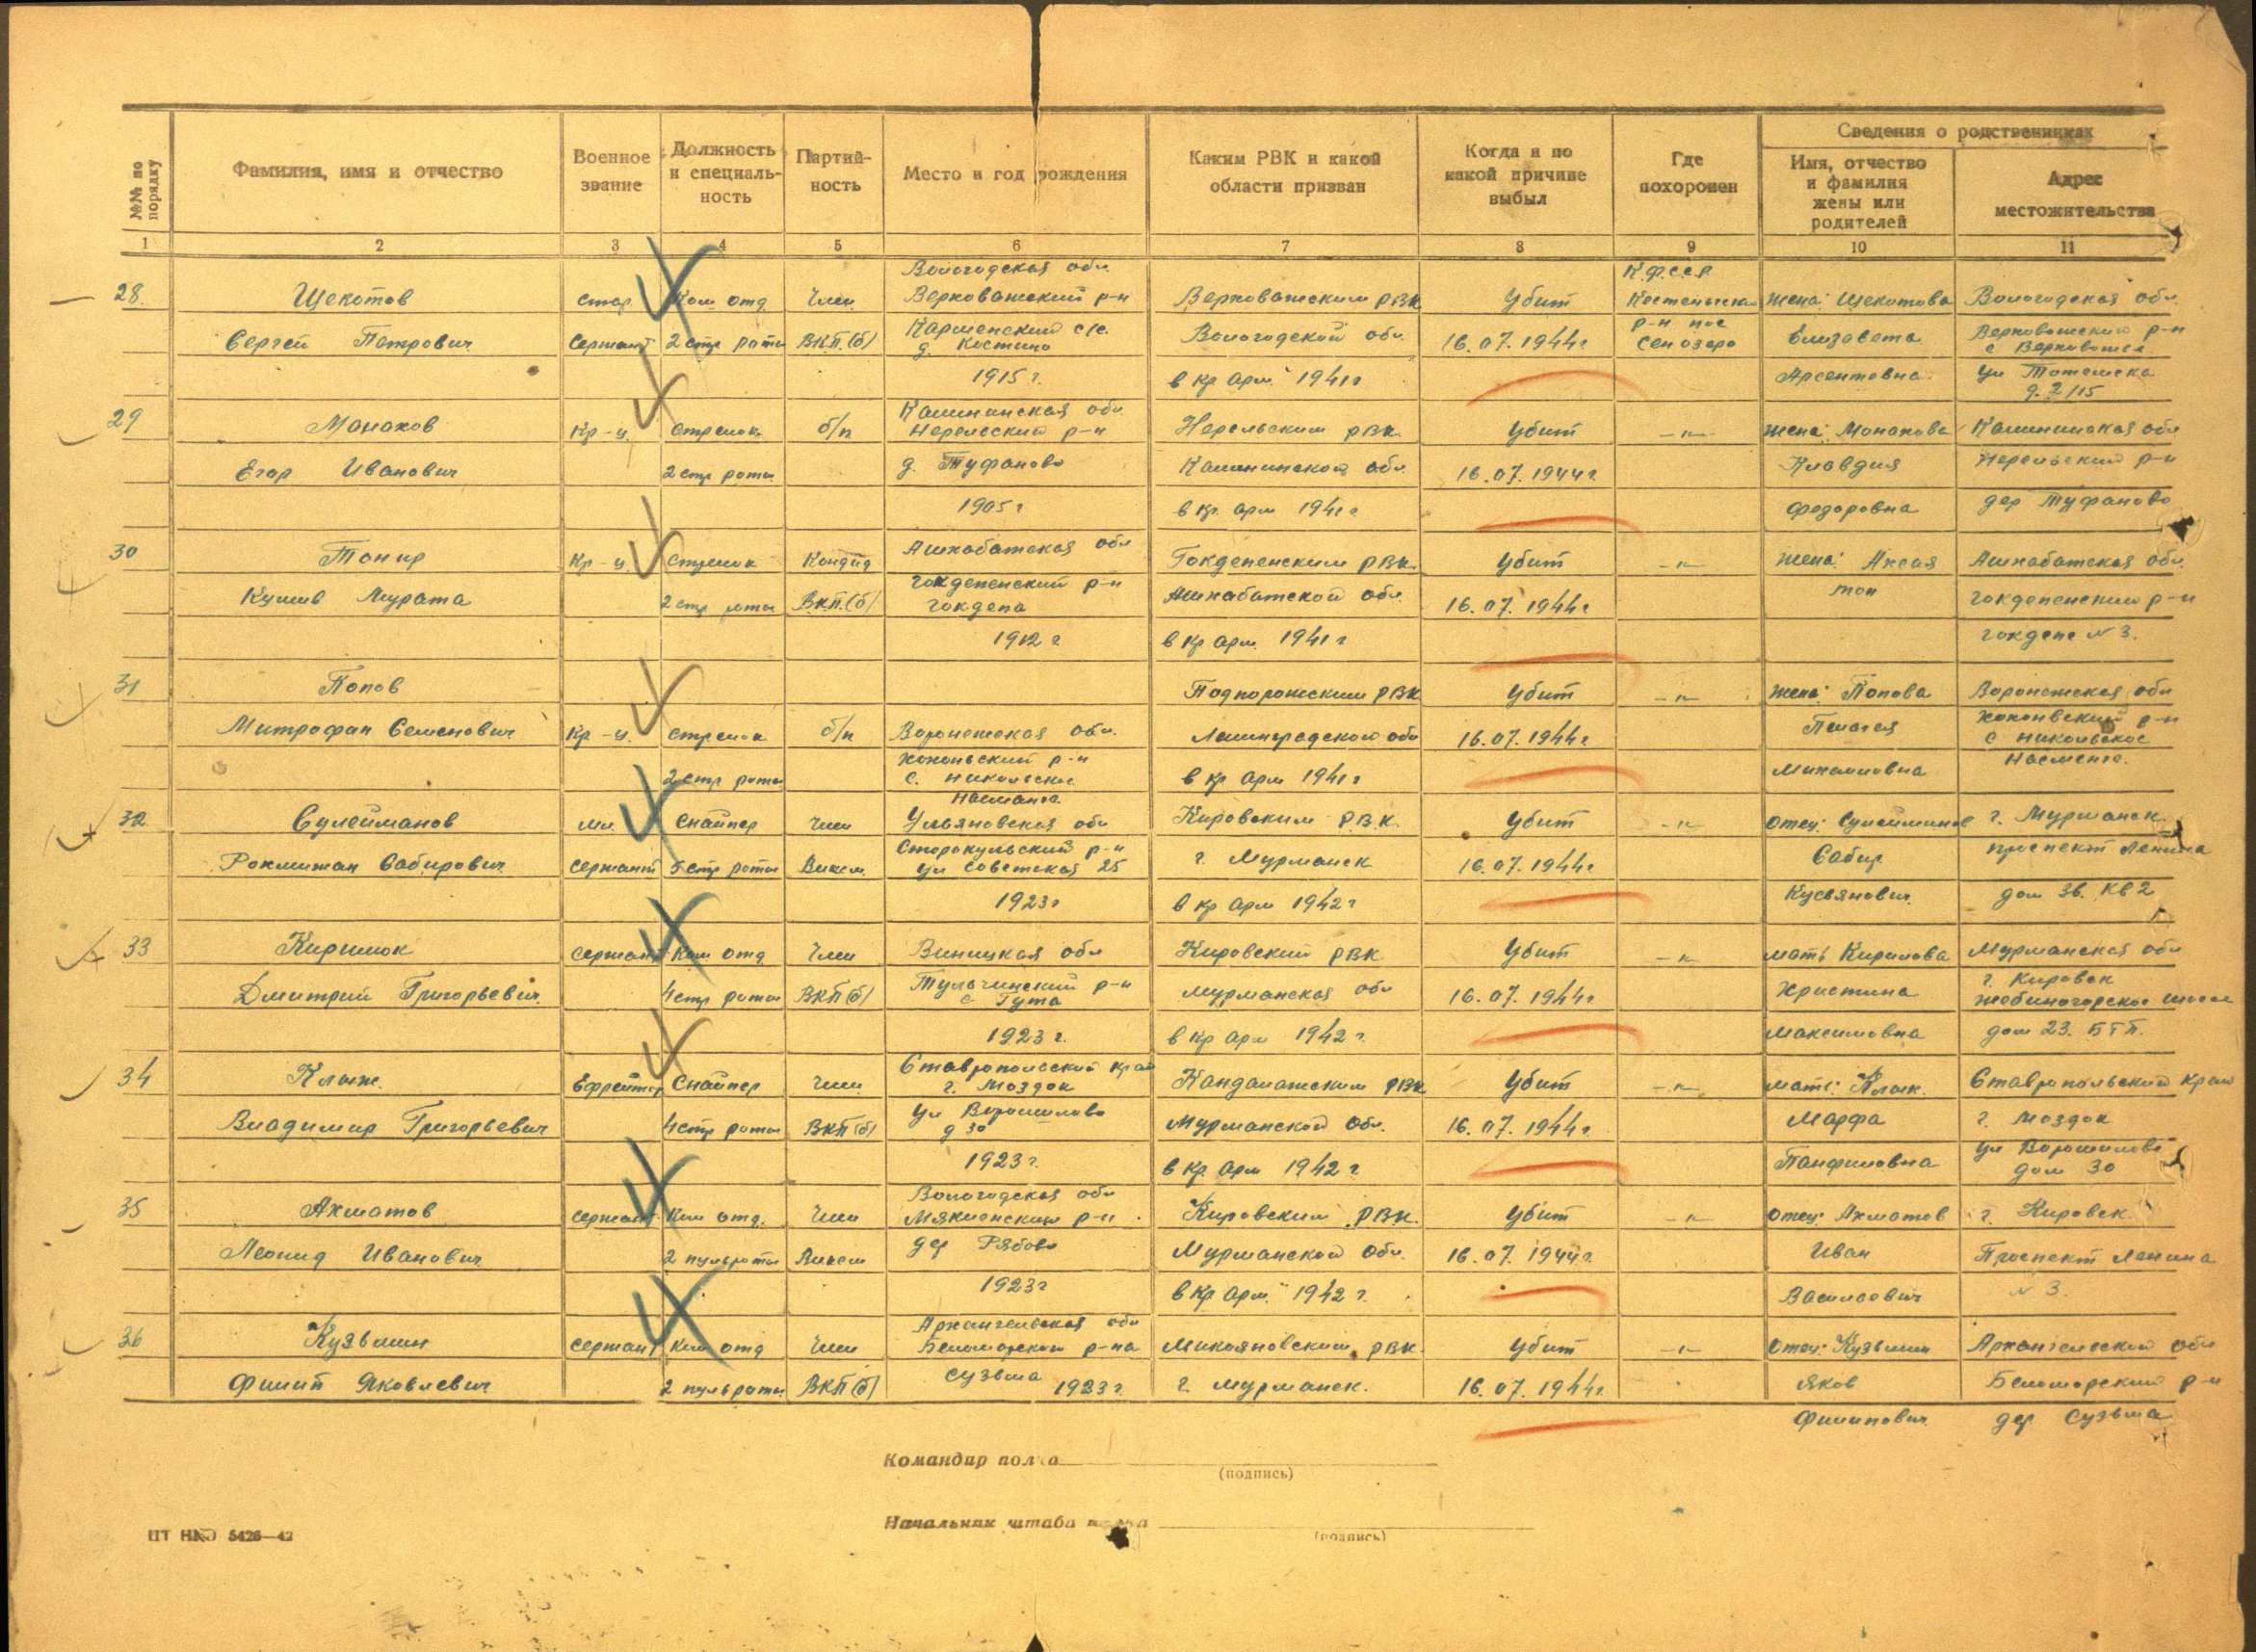 №№ по порядку
Фамилия, имя и отчество
Военное звание
Должность и специальность
Партийность
Место и год рождения
Каким РВК и какой области призван
Когда и по какой причине выбыл
Где похоронен
Сведения о родственниках
Имя, отчество и фамилия жены или родителей
Адрес местожительства
1 2 3 4 5 6 7 8 9 10 11
Вологодская обл. К.Ф.С.С.Р
28. Щекотов стар. Ком отд Член Верховажский р-н Верховажским РВК Убит жена: Щекотова Вологодская обл.
Сергей Петрович Сержант 2 стр роты ВКП.(б) д. Костино Вологодской обл. 16.07.1944г р-н Сенозеро Елизавета Верховажский р-н
1915 г. в кр арм. 1941г Арсентовна ул
д. 2/15
29 Монахов Кр-ц. стрелок б/п Калининская обл. Нерльский р-н Нерльским РВК. Убит -"- жена: Монахова Калининская обл
Егор Иванович 2 стр роты д. Туфаново Калининской обл 16.07.1944г. Клавдия Нерльский р-н
1905г в кр. арм 1941г Федоровна дер Туфаново
30 Тонир Кр-ц. Стрелок Кандид Ашхабатская обл Гокдепенским РВК. Убит -"- жена: Ашхабатская обл.
Мурата 2 стр роты ВКП.(б) гокдепенский р-н гокдепа Ашхабатской обл. 16.07.1944г гокдепенский р-н
1912 г в кр арм. 1941г гокдепе №3.
31 Попов Подпорожским РВК Убит -"- жена: Попова Воронежская обл
Митрофан Семенович Кр-ц. стрелок б/п Воронежская обл. Ленинградской обл 16.07.1944г Пелагея р-н с Никольское
2 стр роты р-н с. Никольское в кр арм 1941г Михайловна
32 Сулейманов мл. Снайпер Член Ульяновская обл Кировским Р.В.К. Убит -"- отец: Сулейманов г. Мурманск
Рокмижан Сабирович сержант 5 стр роты р-н ул Советская 25 г. Мурманск 16.07.1944г Сабир проспект Ленина
1923г в кр арм 1942г дом 36. кв 2
33 Кирилюк сержант Ком отд Член Виницкая обл Кировский РВК Убит -"- мать Мурманская обл
Дмитрий Григорьевич 4 стр роты ВКП(б) Тульчинский р-н Мурманская обл 16.07.1944г Христина г. Кировск
1923 г. в кр арм 1942 г. Максимовна дом 23.
34 Клыж Ефрейтор Снайпер Член Ставропольский край г. Моздок Кандалакшским РВК Убит -"- мать: Ставропольский край
Владимир Григорьевич 4 стр роты ВКП(б) ул Ворошилова д 30 Мурманской обл. 16.07.1944г Марфа г. Моздок
1923 г. в кр. арм 1942 г Панфиловна ул Ворошилова дом 30
35 Ахматов сержант Ком отд. Член Вологодская обл р-н Кировским РВК. Убит -"- отец: Ахматов г. Кировск.
Леонид Иванович 2 пульроты дер Рябово Мурманской обл. 16.07.1944г. Иван Проспект Ленина
1923г в кр арм. 1942 г. Васильевич №3.
36 Кузьмин сержант Ком отд Член Архангельская обл Беломорского р-на Микояновским РВК Убит -"- отец: Кузьмин Архангельский обл
Филип Яковлевич 2 пульроты ВКП(б) Сузьма 1923г г. Мурманск. 16.07.1944г. Яков Беломорский р-н
Филипович дер Сузьма
Командир полка
(подпись)
Начальник штаба полка
(подпись)